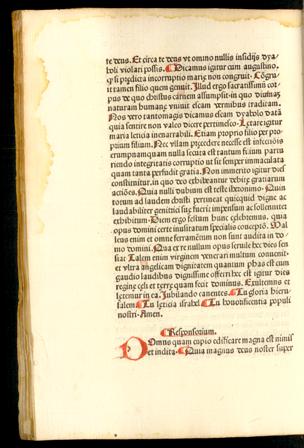 te deus. Et circa te deus vt omino nullis insidijs dya
boli violari possis. Dicamus igitur cum augustino.
q si predicta incorruptio marie non congruit. Cōgru
it tamen filio quem genuit. Illud ergo sacratissimū cor
pus de quo christus carnem assumpsit in quo
naturam humane vniuit escam vermibus tradicam.
Nos vero tantomagis dicamus escam dyabolo datā
quia sentire non valeo dicere pertimesco. Letare igitur
maria leticia inenarrabili. Etiam proprio filio per pro
prium filium. Nec vllam predecere necesse est
erumpnamquam nulla secuta est tantum filium partu
riendo integritatis corruptio vt sit semper immaculata
quam tanta perfudit gratia. Non immerito igitur dies
constituitur. in quo deo exhibeantur debite gratiarum
actiões. Quia nulli dubium est teste iheronimo. Quin
totum ad laudem christi pertineat quicquid digne ac
laudabiliter genitrici sue fuerit impensum ac sollenniter
exhibitum. Diem ergo festum hunc celebremus, quia
opus domini certe inusitatum specialis conceptō. Mal
leus enim et omne ferramētum non sunt audita in do
mo domini. Qua et re nullum opus seruile hec dies sen
siat Talem enim virginem venerari multum conuenit.
et vltra angelicam dignitatem quantum phas est cum
gaudio laudibus dignissime offerri hec est igitur dies
regine celi et terre quam fecit dominus. Exultemus et
letemur in ea. Jubilando canentes. Tu gloria hieru
salem. Tu leticia israhel. Tu honorificentia populi
nostri. Amen.
Responsorium.
Domus quam cupio edificare magna est nimis
et indita. Quia magnus deus noster super